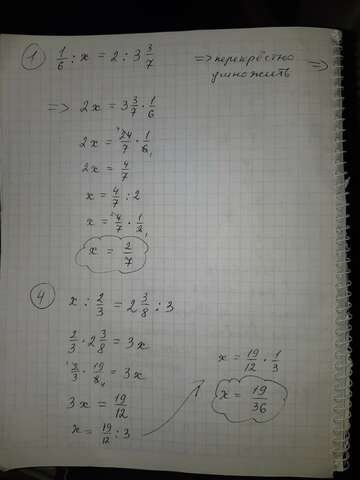 ① 1/6 : x = 2 : 3 3/7 => перекрёстно умножить =>
=> 2x = 3 3/7 · 1/6
2x = 24/7 · 1/6
2x = 4/7
x = 4/7 : 2
x = 4/7 · 1/2
x = 2/7
④ x : 2/3 = 2 3/8 : 3
2/3 · 2 3/8 = 3x
2/3 · 19/8 = 3x
3x = 19/12
x = 19/12 : 3
x = 19/12 · 1/3
x = 19/36